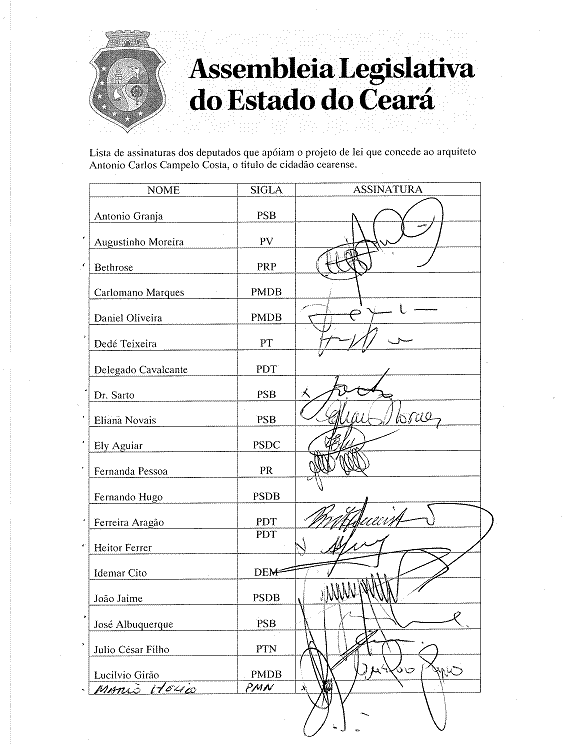 Assembleia Legislativa
do Estado do Ceará
Lista de assinaturas dos deputados que apóiam o projeto de lei que concede ao arquiteto
Antonio Carlos Campelo Costa, o título de cidadão cearense.
NOME SIGLA ASSINATURA
Antonio Granja PSB
Augustinho Moreira PV
Bethrose PRP
Carlomano Marques PMDB
Daniel Oliveira PMDB
Dedé Teixeira PT
Delegado Cavalcante PDT
Dr. Sarto PSB
Eliana Novais PSB Eliane Novaes
Ely Aguiar PSDC
Fernanda Pessoa PR
Fernando Hugo PSDB
Ferreira Aragão PDT
PDT
Heitor Ferrer
Idemar Cito DEM
João Jaime PSDB
José Albuquerque PSB
Julio César Filho PTN
Lucílvio Girão PMDB
Mario Hélio PMN